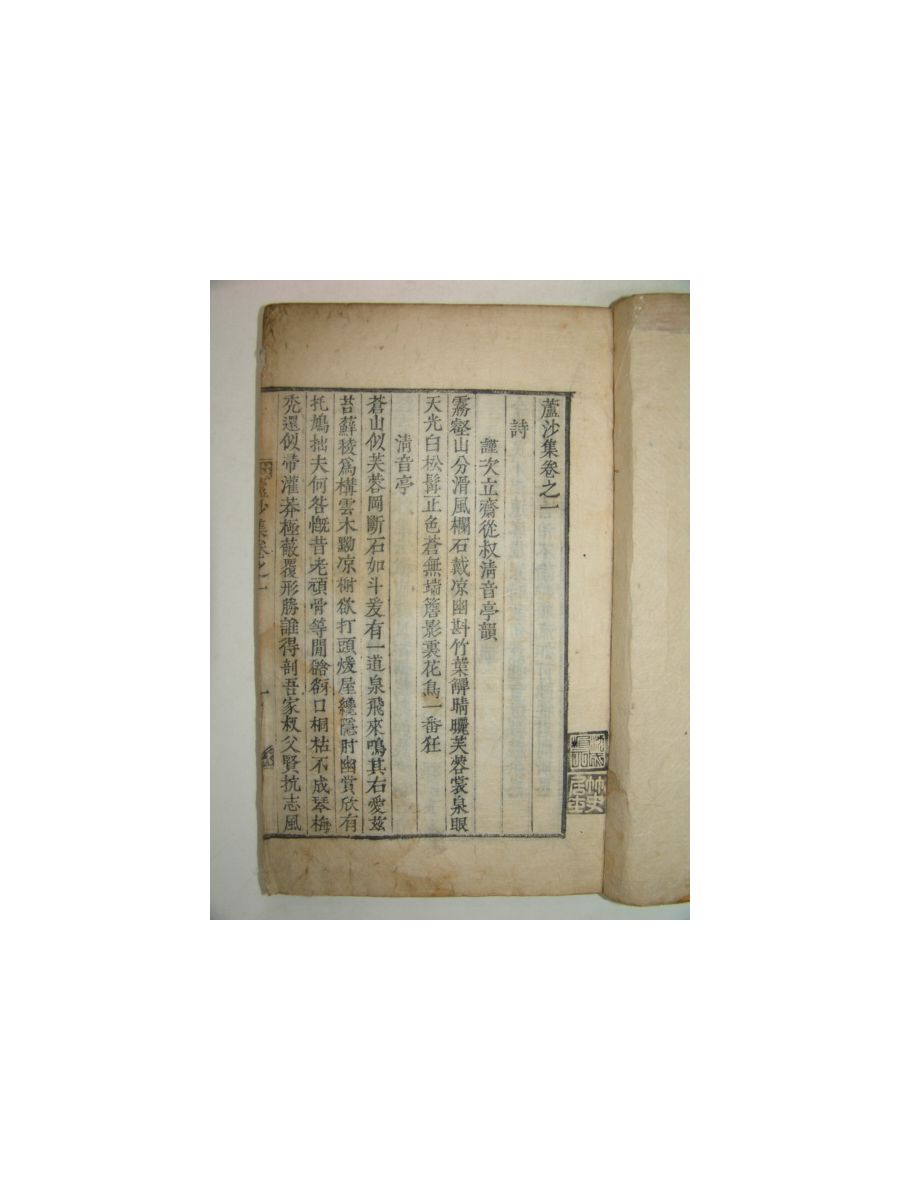 蘆沙集卷之一
詩
謹次立齋從叔淸音亭韻
霧壑山分滑風欄石戴凉幽斟竹葉觶晴曬芙蓉裳泉眼
天光白松髯正色蒼無端簷影裏花鳥一番狂
淸音亭
蒼山似芙蓉岡斷石如斗爰有一道泉飛來鳴其右愛玆
苔蘚稜爲構雲木黝凉榭欲打頭煖屋纔隱肘幽賞欣有
托鳩拙夫何咎慨昔老頑骨等閒谽谺口桐枯不成琴梅
禿還似帚灌莽極蔽覆形勝誰得剖吾家叔父賢抗志風
沙集卷之一